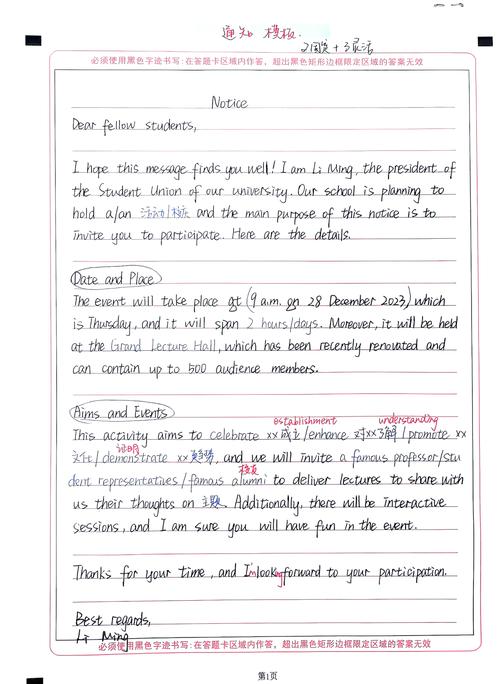 通知 模板.
必须使用黑色字迹书写:在答题卡区域内作答,超出黑色矩形边框限定区域的答案无效
Notice
Dear fellow students,
I hope this message finds you well! I am Li Ming, the president of
the Student Union of our university. Our school is planning to
hold a/an 活动/校庆 and the main purpose of this notice is to
invite you to participate. Here are the details.
Date and Place
The event will take place at (9 a.m. on 28 December 2023) which
is Thursday, and it will span 2 hours/days. Moreover, it will be held
at the Grand Lecture Hall, which has been recently renovated and
can contain up to 500 audience members.
Aims and Events
establishment understanding
This activity aims to celebrate xx成立/enhance 对xx了解/promote xx
证明
文化/demonstrate xx, and we will invite a famous professor/stu
校友
dent representatives/famous alumni to deliver lectures to share with
us their thoughts on 主题. Additionally, there will be interactive
sessions, and I am sure you will have fun in the event.
Thanks for your time, and I'm looking forward to your participation.
Best regards,
Li Ming
必须使用黑色字迹书写:在答题卡区域内作答,超出黑色矩形边框限定区域的答案无效
第1页